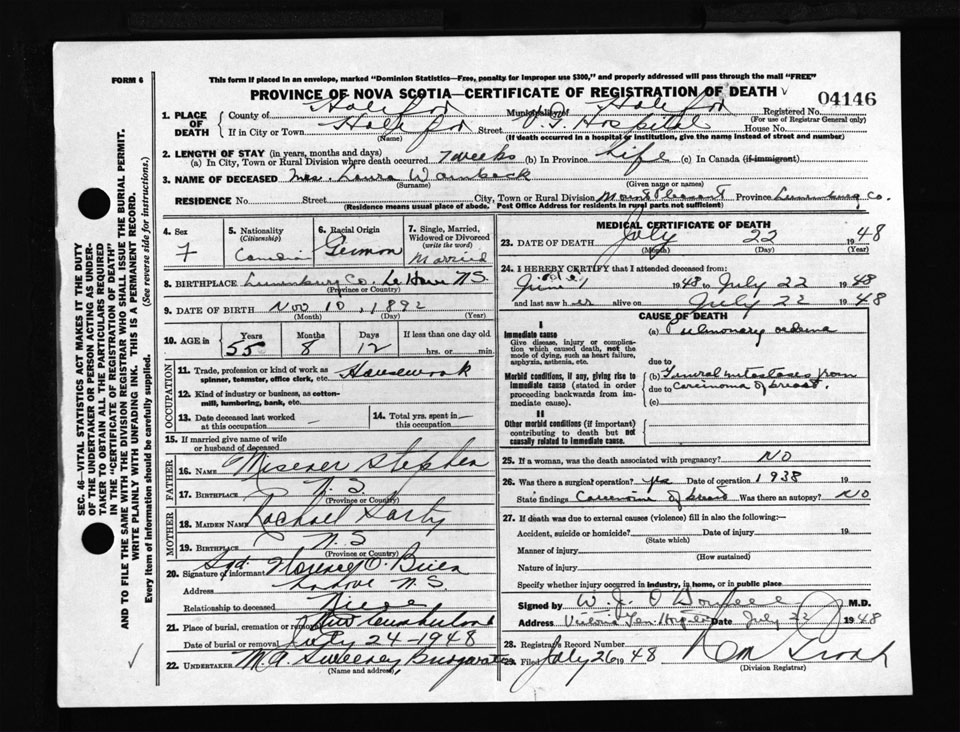 FORM 6
This form if placed in an envelope, marked "Dominion Statistics—Free, penalty for improper use $300," and properly addressed will pass through the mail "FREE"
PROVINCE OF NOVA SCOTIA—CERTIFICATE OF REGISTRATION OF DEATH
04146
1. PLACE OF DEATH
County of Halifax Municipality of Halifax Registered No.
(For use of Registrar General only)
If in City or Town Halifax Street V. G. Hospital House No.
(Name) (If death occurred in a hospital or institution, give the name instead of street and number)
2. LENGTH OF STAY (in years, months and days)
(a) In City, Town or Rural Division where death occurred 7 weeks (b) In Province Life (c) In Canada (if immigrant)
3. NAME OF DECEASED Mrs. Laura Wambeck
(Surname) (Given name or names)
RESIDENCE No. Street City, Town or Rural Division Mount Pleasant Province Lunenburg Co.
(Residence means usual place of abode. Post Office Address for residents in rural parts not sufficient)
4. Sex F
5. Nationality (Citizenship)
6. Racial Origin German
7. Single, Married, Widowed or Divorced (write the word) Married
8. BIRTHPLACE Lunenburg Co. LaHave N.S.
(Province or Country)
9. DATE OF BIRTH Nov 10, 1892
(Month) (Day) (Year)
10. AGE in Years Months Days If less than one day old
55 8 12 hrs. or min.
OCCUPATION
11. Trade, profession or kind of work as spinner, teamster, office clerk, etc. Housework
12. Kind of industry or business, as cotton-mill, lumbering, bank, etc.
13. Date deceased last worked at this occupation
14. Total yrs. spent in this occupation
15. If married give name of wife or husband of deceased
FATHER
16. NAME Misener Stephen
17. BIRTHPLACE N. S.
(Province or Country)
MOTHER
18. MAIDEN NAME Rachael
19. BIRTHPLACE N. S
(Province or Country)
20. Signature of informant Sgd. Florence O. Brien
Address Lahave N. S.
Relationship to deceased Niece
21. Place of burial, cremation or removal
Date of burial or removal July 24-1948
22. UNDERTAKER M. A. Sweeney Bridgewater
(Name and Address)
MEDICAL CERTIFICATE OF DEATH
23. DATE OF DEATH July 22 1948
(Month) (Day) (Year)
24. I HEREBY CERTIFY that I attended deceased from
June 1 1948 to July 22 1948
and last saw her alive on July 22 1948
CAUSE OF DEATH
I
Immediate cause
Give disease, injury or complication which caused death, not the mode of dying, such as heart failure, asphyxia, asthenia, etc.
(a) Pulmonary oedema
due to
Morbid conditions, if any, giving rise to immediate cause (stated in order proceeding backwards from immediate cause).
(b) General metastases from
due to Carcinoma of breast.
(c)
II
Other morbid conditions (if important) contributing to death but not causally related to immediate cause.
25. If a woman, was the death associated with pregnancy? NO
26. Was there a surgical operation? yes Date of operation 1938 19
State findings Carcinoma of breast Was there an autopsy? NO
27. If death was due to external causes (violence) fill in also the following:—
Accident, suicide or homicide? Date of injury 19
(State which)
Manner of injury
(How sustained)
Nature of injury
Specify whether injury occurred in industry, in home, or in public place
Signed by M.D.
Address Victoria Gen. Hosp. Date July 22 1948
28. Registrar's Record Number
29. Filed July 26 1948
(Division Registrar)
SEC. 46—VITAL STATISTICS ACT MAKES IT THE DUTY
OF THE UNDERTAKER OR PERSON ACTING AS UNDER-
TAKER TO OBTAIN ALL THE PARTICULARS REQUIRED
IN THE "CERTIFICATE OF REGISTRATION OF DEATH"
AND TO FILE THE SAME WITH THE DIVISION REGISTRAR WHO SHALL ISSUE THE BURIAL PERMIT.
WRITE PLAINLY WITH UNFADING INK. THIS IS A PERMANENT RECORD.
Every item of Information should be carefully supplied. (See reverse side for instructions.)